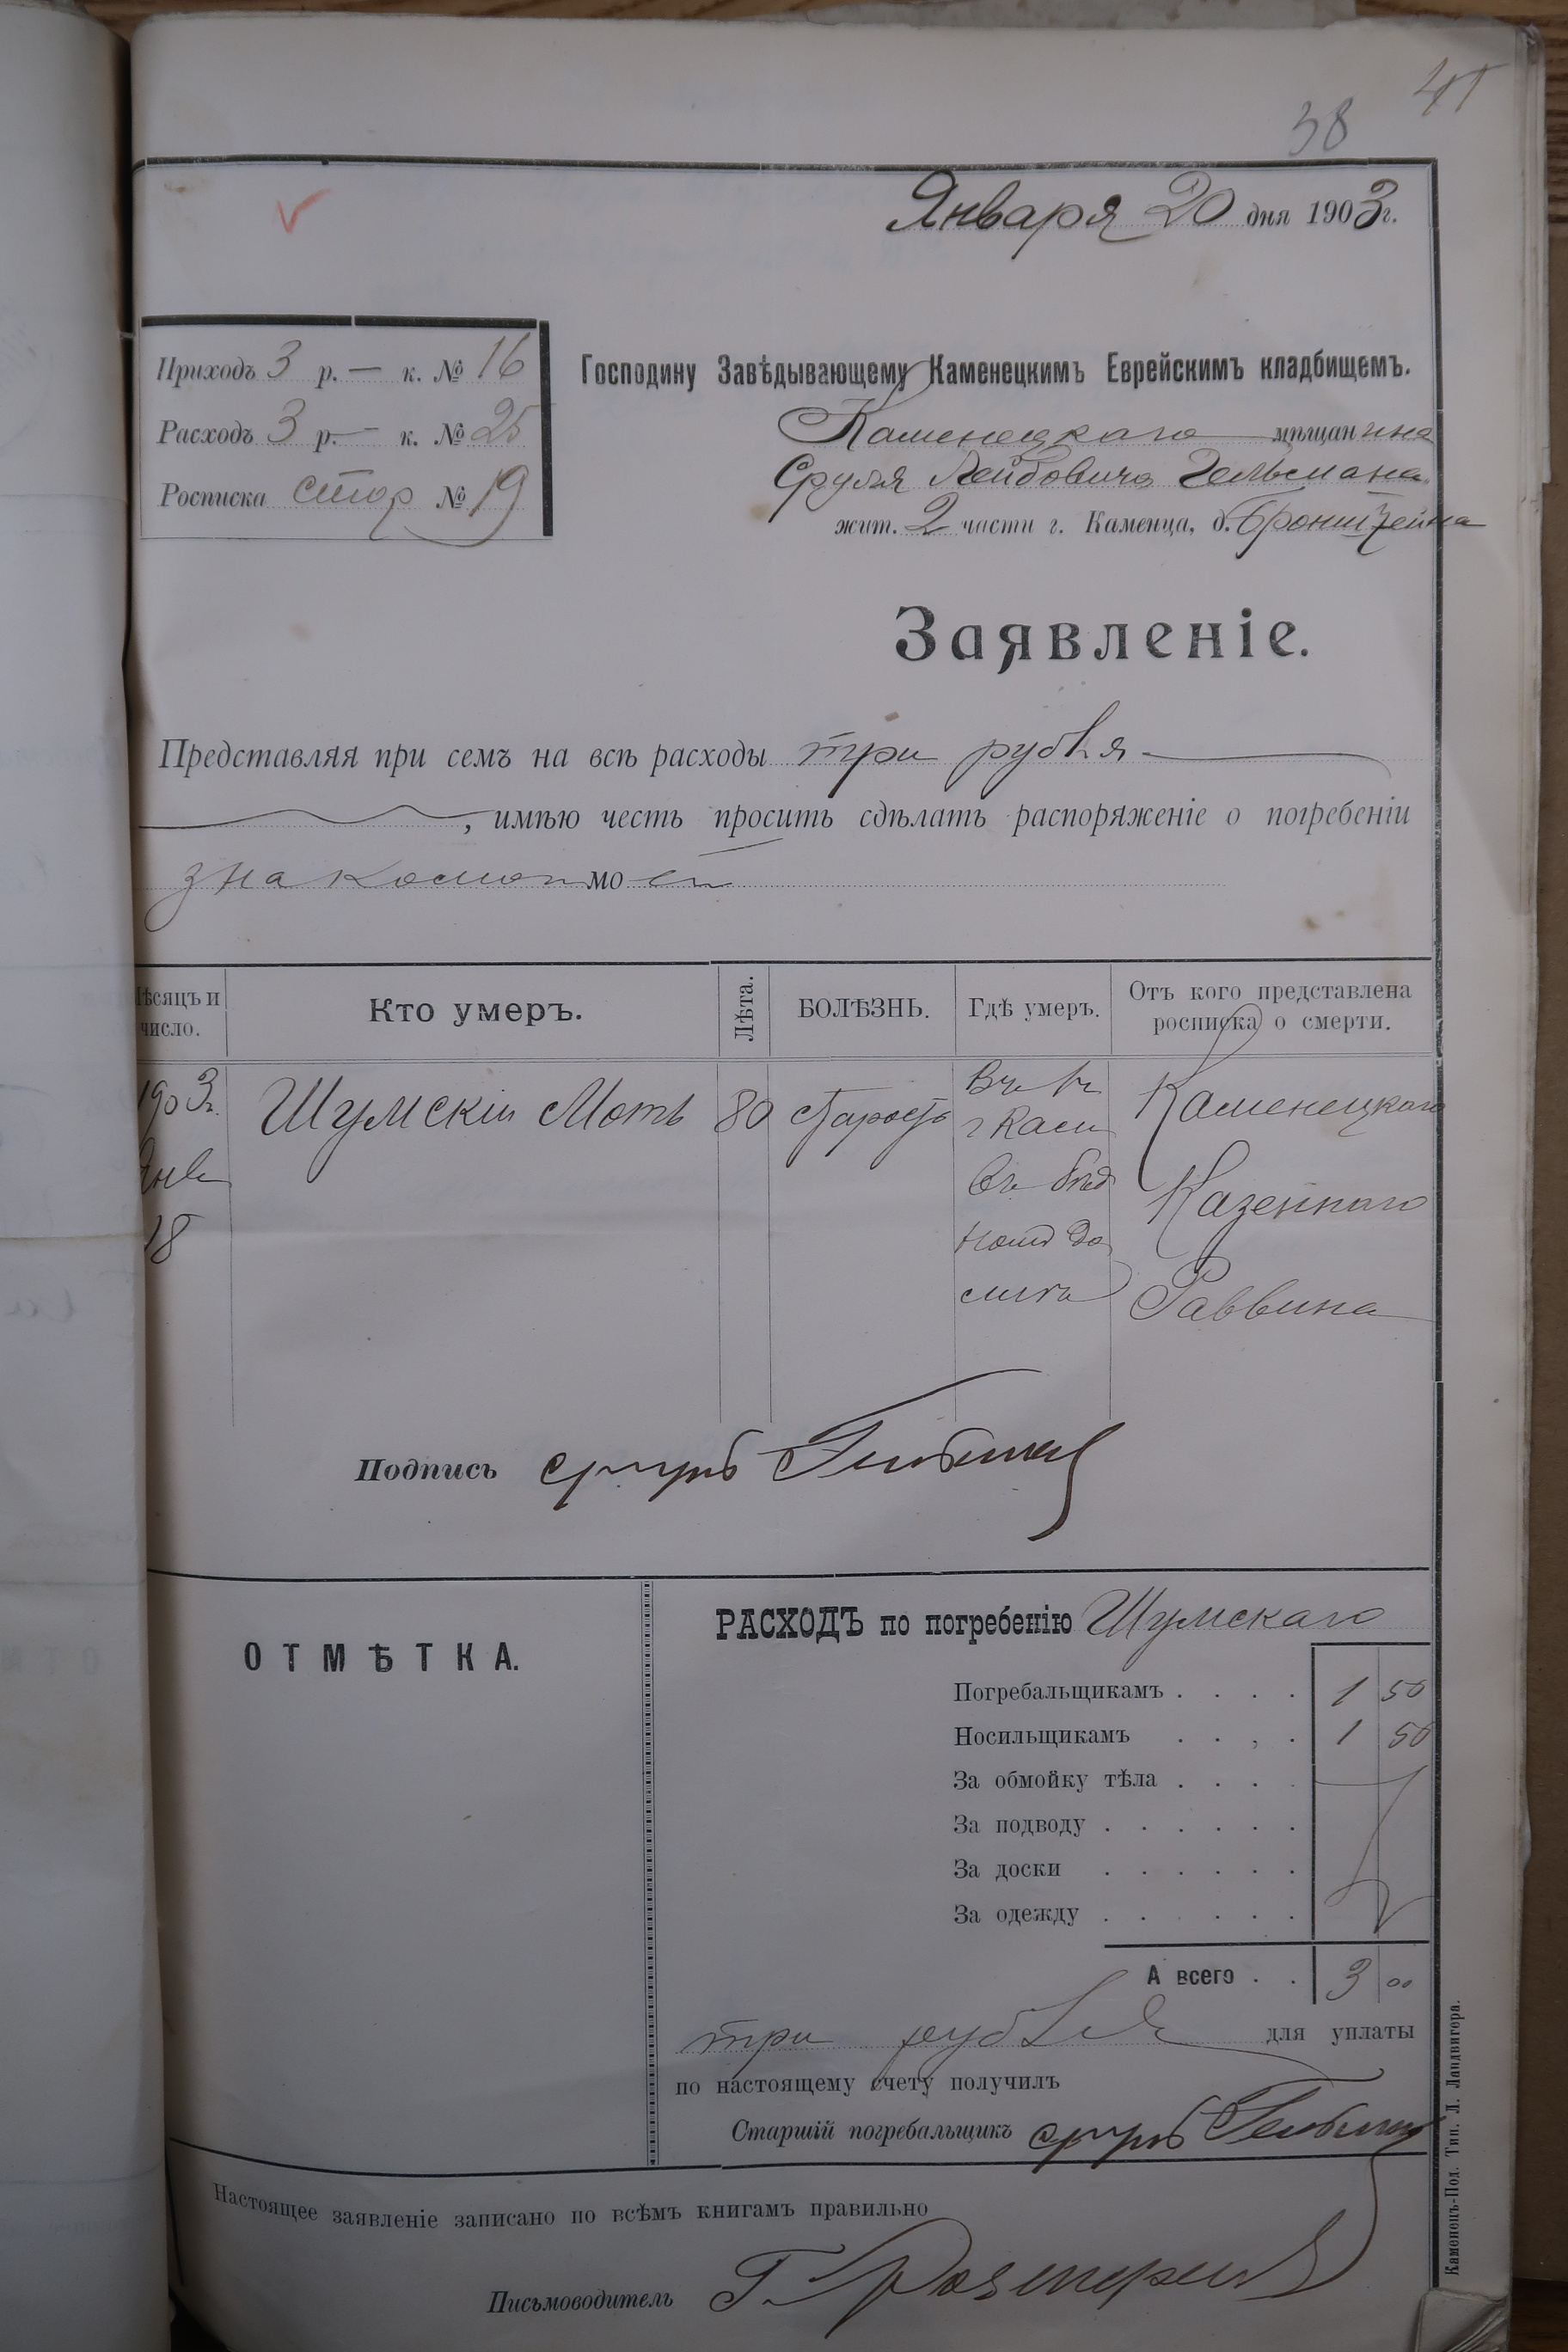 41
38
Января 20 дня 1903 г.
Приходъ 3 р. — к. № 16
Расходъ 3 р. — к. № 25
Росписка стор № 19
Господину Завѣдывающему Каменецкимъ Еврейскимъ кладбищемъ.
Каменецкаго мѣщанина
Сруля Лейбовича Гельмана
жит. 2 части г. Каменца, д. Бронштейна
Заявленіе.
Представляя при семъ на всѣ расходы три рубля
, имѣю честь просить сдѣлать распоряженіе о погребеніи
знакомого моего
Мѣсяцъ и число.
Кто умеръ.
Лѣта.
БОЛѢЗНЬ.
Гдѣ умеръ.
Отъ кого представлена росписка о смерти.
1903 г.
Янв
18
Шумскій Моть
80
старость
Въ
г Кам
Въ
номъ до
Каменецкаго
Казеннаго
Раввина
Подпись сруль
ОТМѢТКА.
РАСХОДЪ по погребенію Шумскаго
Погребальщикамъ . . . . 1 50
Носильщикамъ . . , . 1 50
За обмойку тѣла . . . .
За подводу . . . . . .
За доски . . . . . .
За одежду . . . . . .
А всего . . 3 00
три рубля для уплаты
по настоящему счету получилъ
Старшій погребальщикъ сруль
Настоящее заявленіе записано по всѣмъ книгамъ правильно
Письмоводитель Г.
Каменецъ-Под. Тип. Л. Ландвигера.